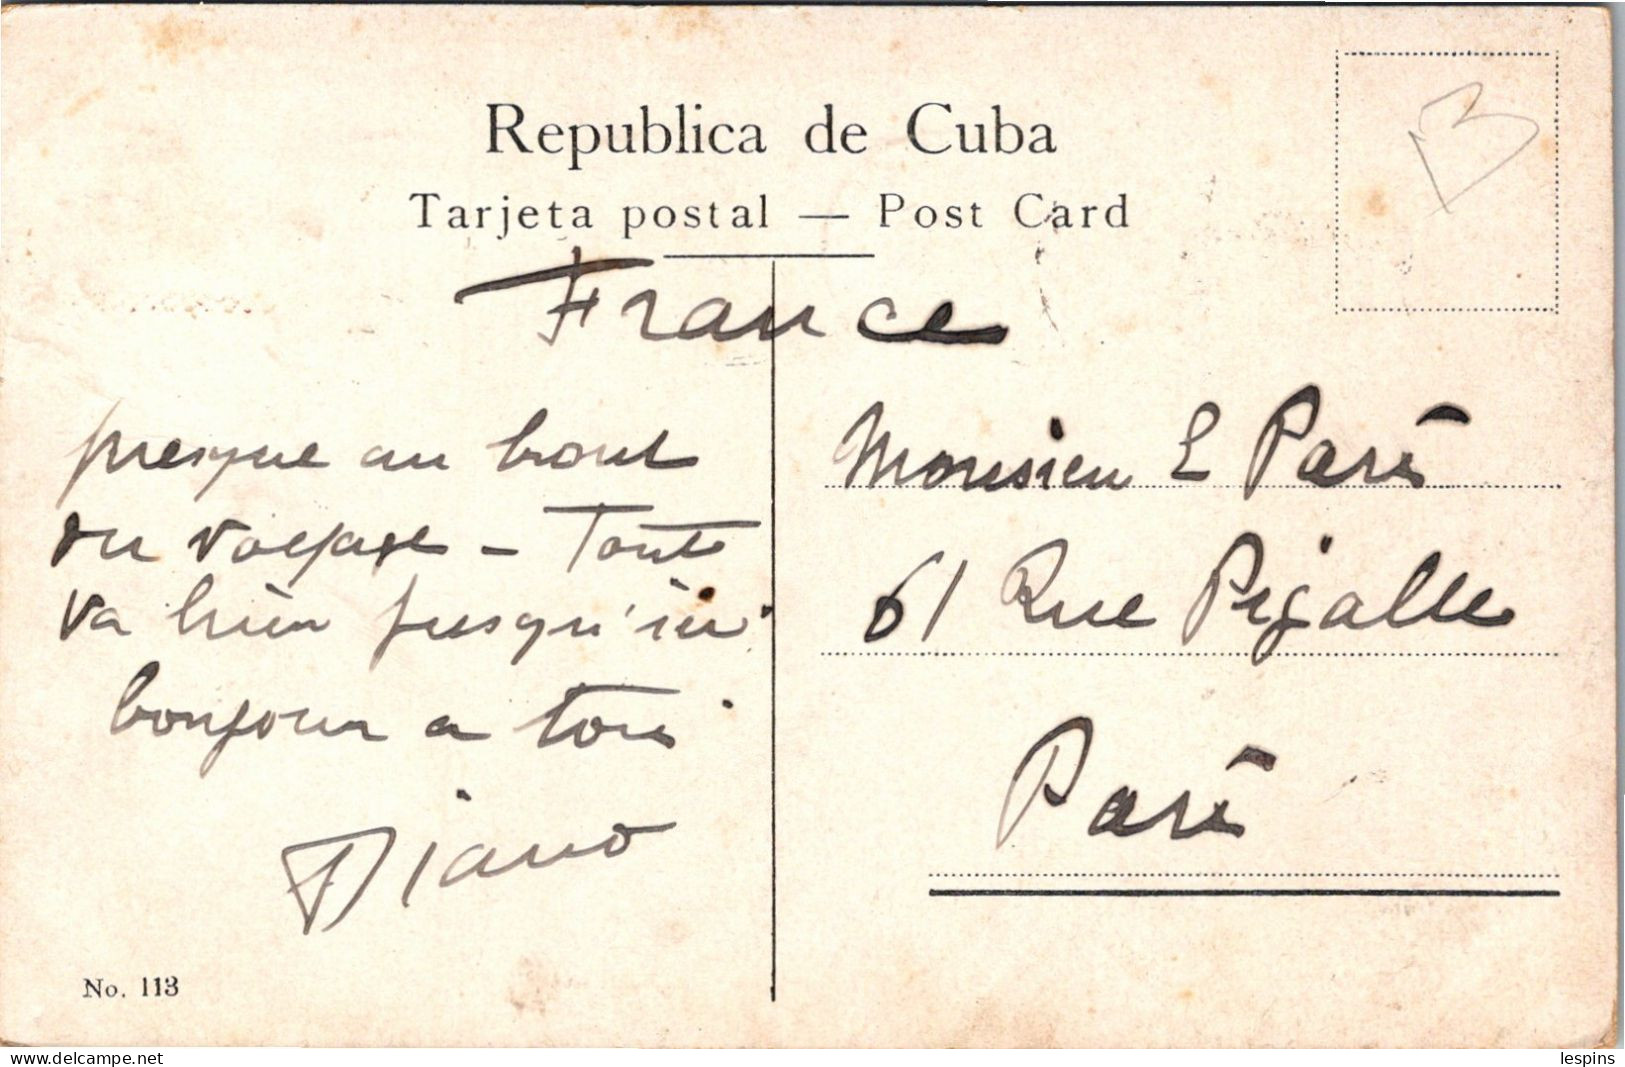 Republica de Cuba
Tarjeta postal — Post Card
France
presque au bout
du voyage - Toute
va bien jusqu'ici
bonjour a tous
Monsieur E Paris
61 Rue Pigalle
Paris
No. 113
www.delcampe.net
lespins